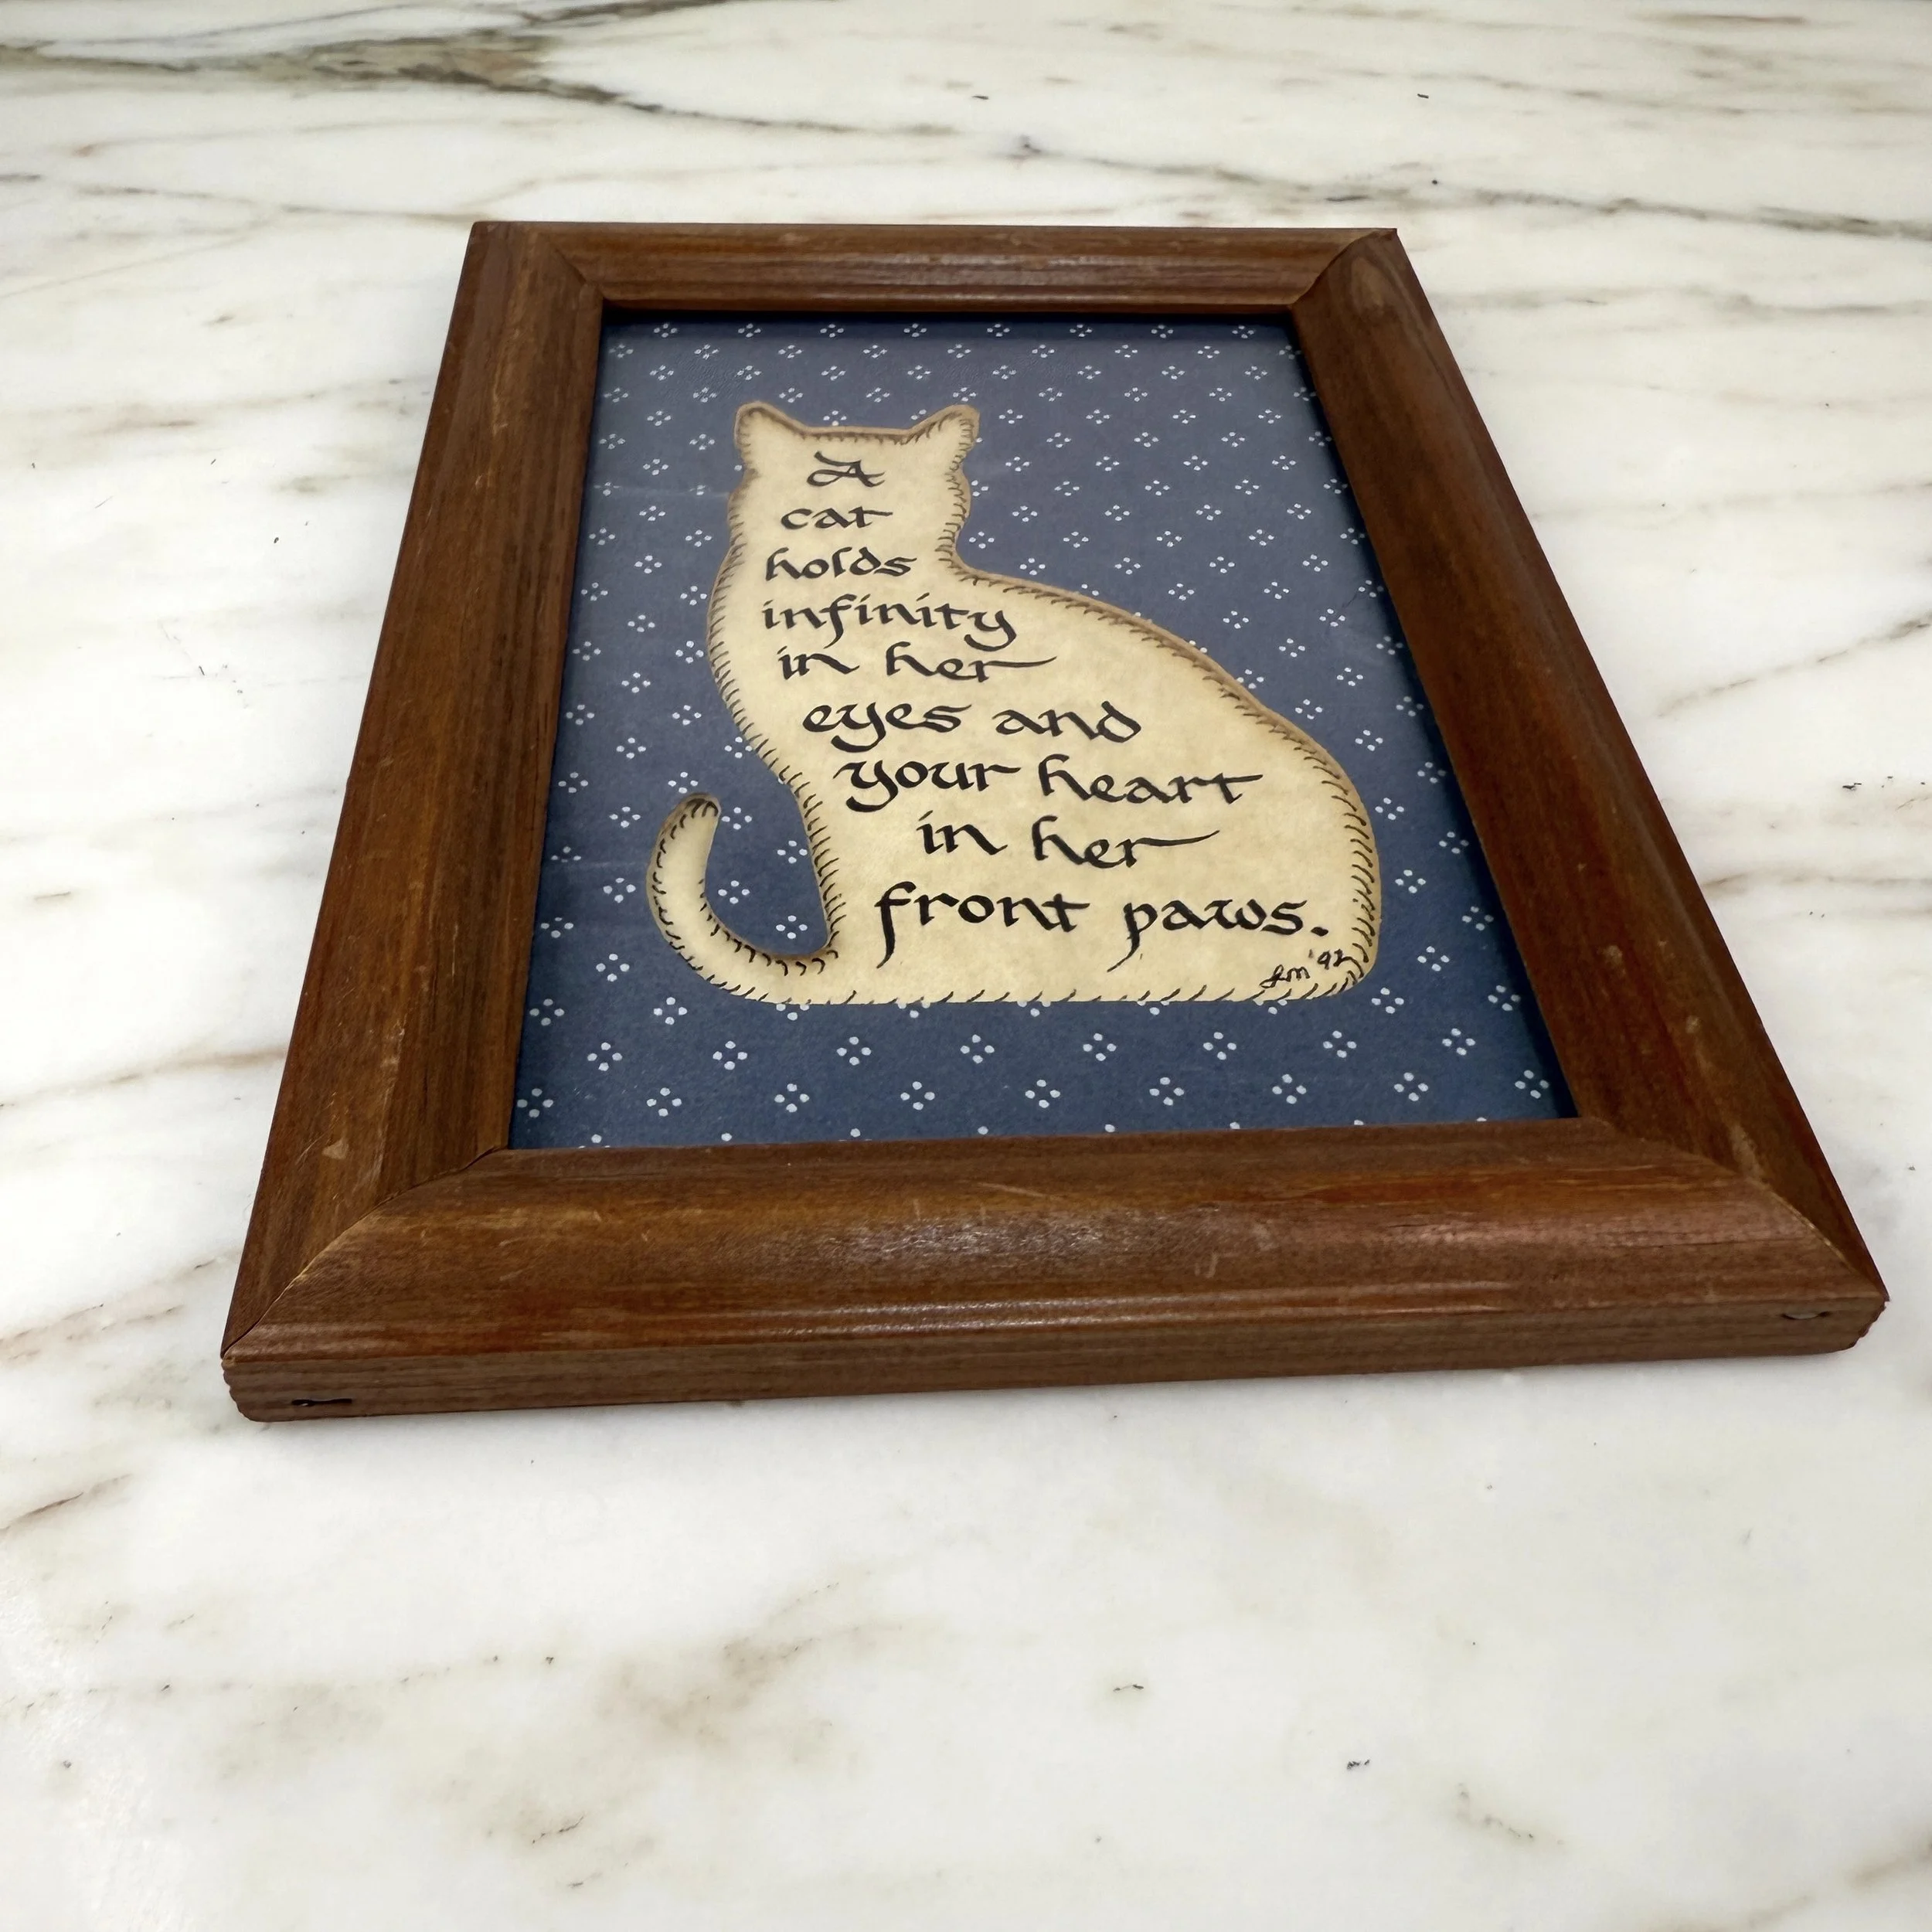 A
cat
holds
infinity
in her
eyes and
your heart
in her
front paws.
JM '92